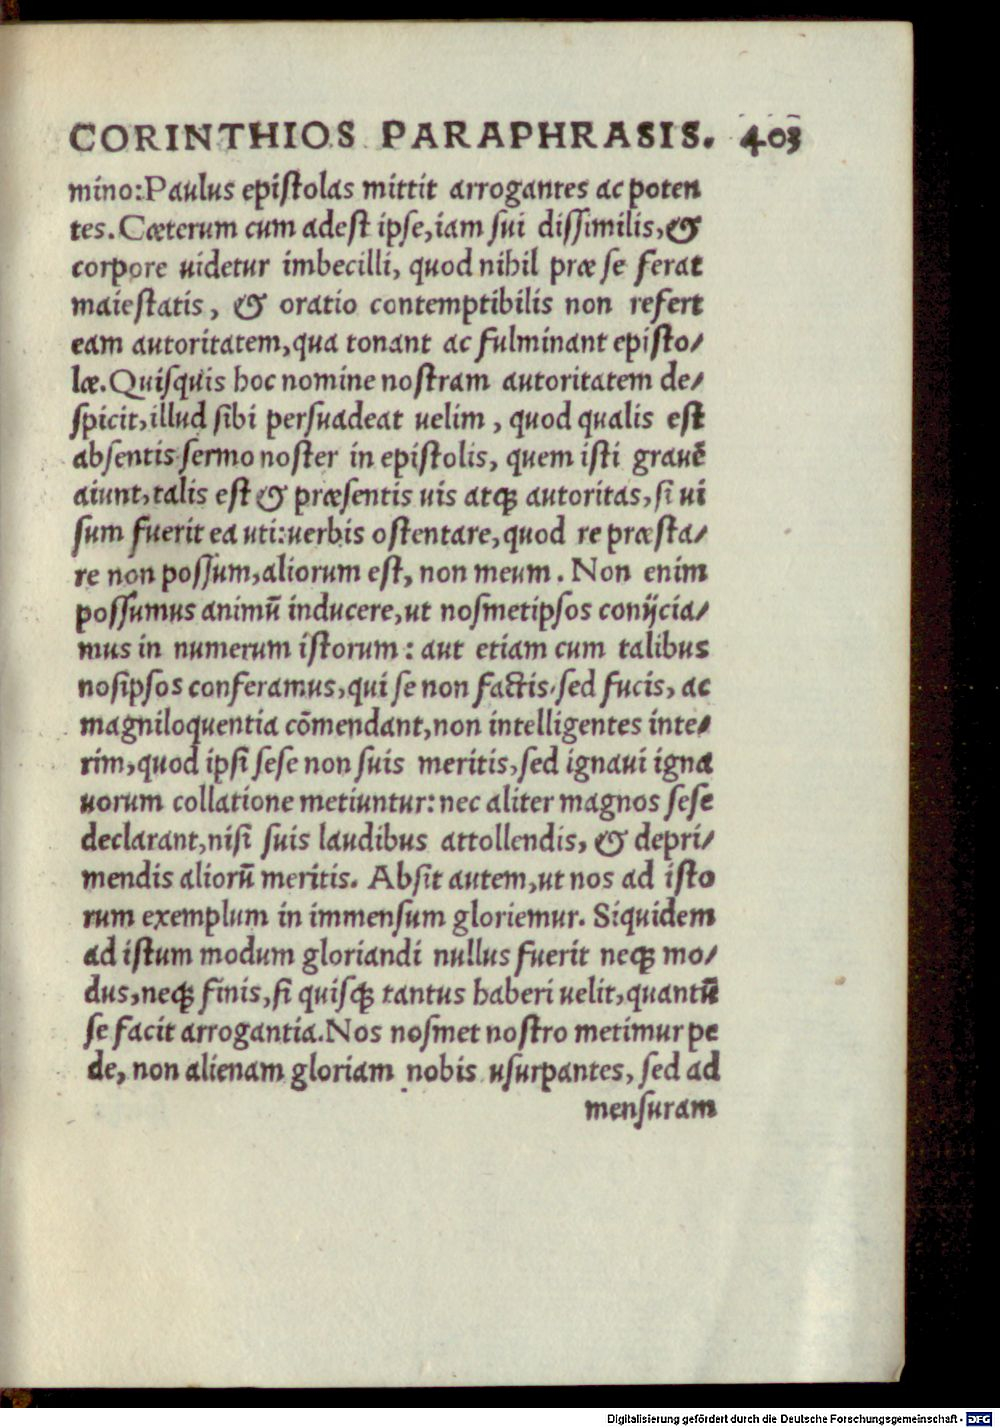 CORINTHIOS PARAPHRASIS. 403
mino:Paulus epistolas mittit arrogantes ac poten
tes. Cæterum cum adest ipse, iam sui dissimilis, &
corpore uidetur imbecilli, quod nihil præ se ferat
maiestatis, & oratio contemptibilis non refert
eam autoritatem, qua tonant ac fulminant episto/
læ. Quisquis hoc nomine nostram autoritatem de/
spicit, illud sibi persuadeat uelim, quod qualis est
absentis sermo noster in epistolis, quem isti grauē
aiunt, talis est & præsentis uis atq; autoritas, si ui
sum fuerit ea uti: uerbis ostentare, quod re præsta/
re non possum, aliorum est, non meum. Non enim
possumus animū inducere, ut nosmetipsos conijcia/
mus in numerum istorum: aut etiam cum talibus
nosipsos conferamus, qui se non factis, sed fucis, ac
magniloquentia cōmendant, non intelligentes inte/
rim, quod ipsi sese non suis meritis, sed ignaui igna
uorum collatione metiuntur: nec aliter magnos sese
declarant, nisi suis laudibus attollendis, & depri/
mendis aliorū meritis. Absit autem, ut nos ad isto
rum exemplum in immensum gloriemur. Siquidem
ad istum modum gloriandi nullus fuerit neq; mo/
dus, neq; finis, si quisq; tantus haberi uelit, quantū
se facit arrogantia. Nos nosmet nostro metimur pe
de, non alienam gloriam nobis usurpantes, sed ad
mensuram
Digitalisierung gefördert durch die Deutsche Forschungsgemeinschaft - DFG